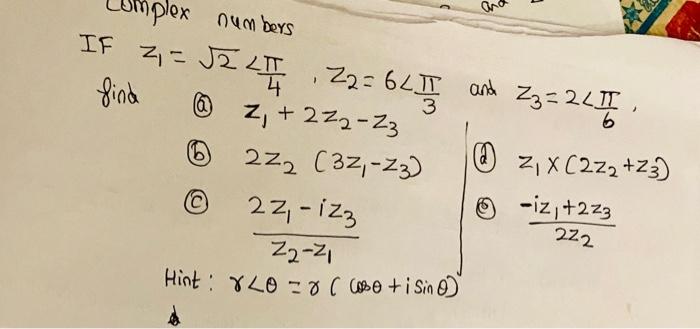 Complex numbers
and
IF z₁ = √2 ∠π/4 , z₂ = 6∠π/3 and z₃ = 2∠π/6 ,
find
ⓐ z₁ + 2z₂ - z₃
ⓑ 2z₂ (3z₁ - z₃)
ⓒ (2z₁ - iz₃)/(z₂ - z₁)
ⓓ z₁ x (2z₂ + z₃)
ⓔ (-iz₁ + 2z₃)/(2z₂)
Hint : r∠θ = r ( cosθ + i Sinθ)